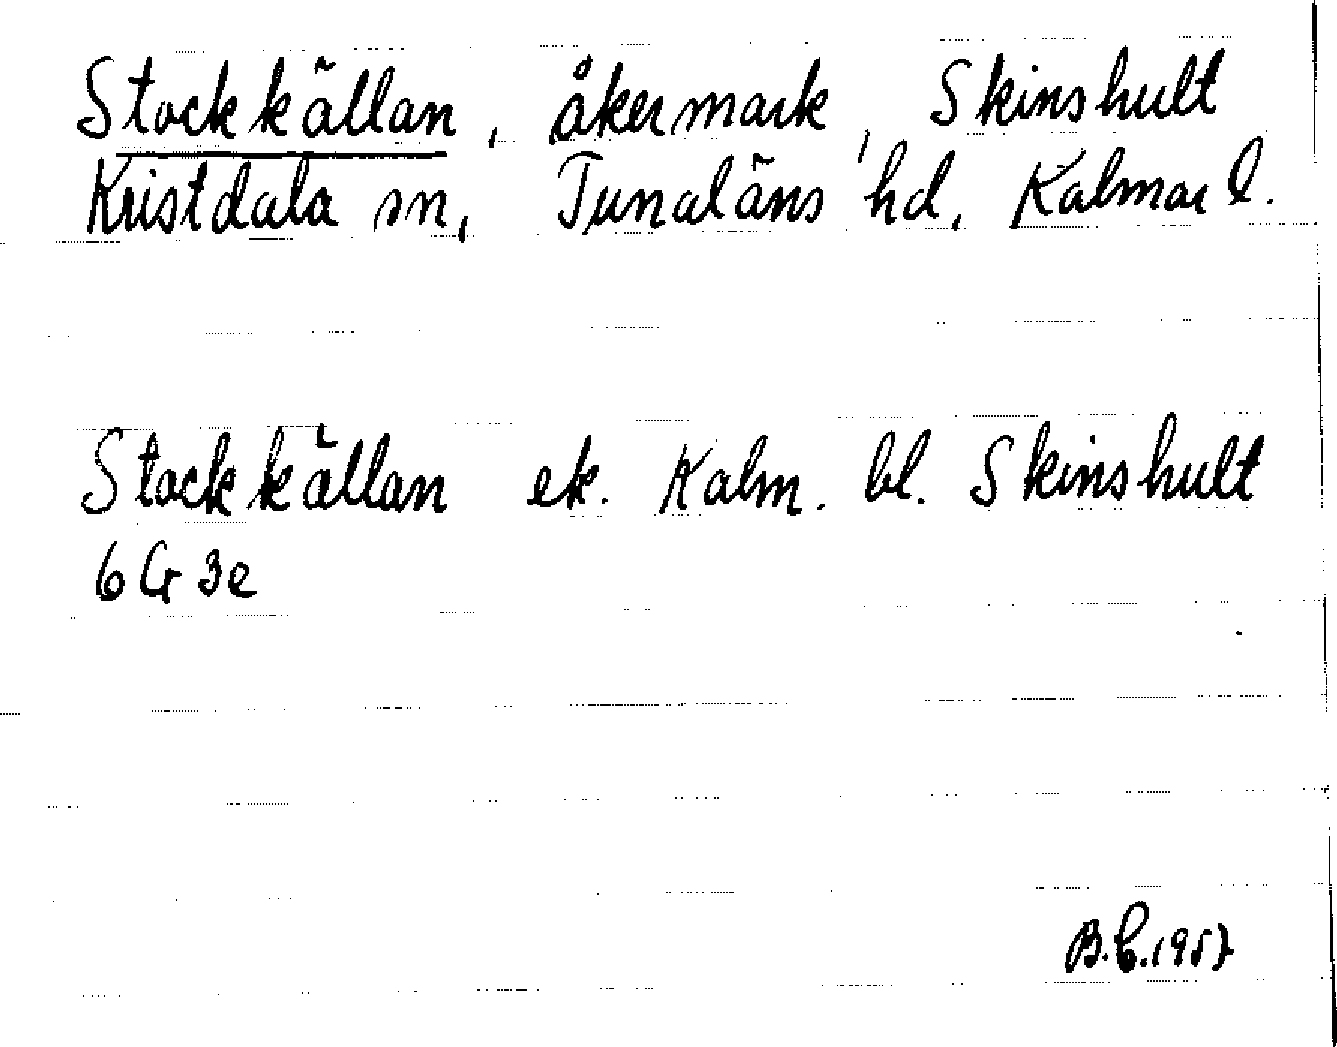 Stockkällan, åkermark, Skinshult
Kristdala sn, Tunaläns hd, Kalmar l.
Stockkällan ek. Kalm. bl. Skinshult
6 G 3e
B.C. 1957